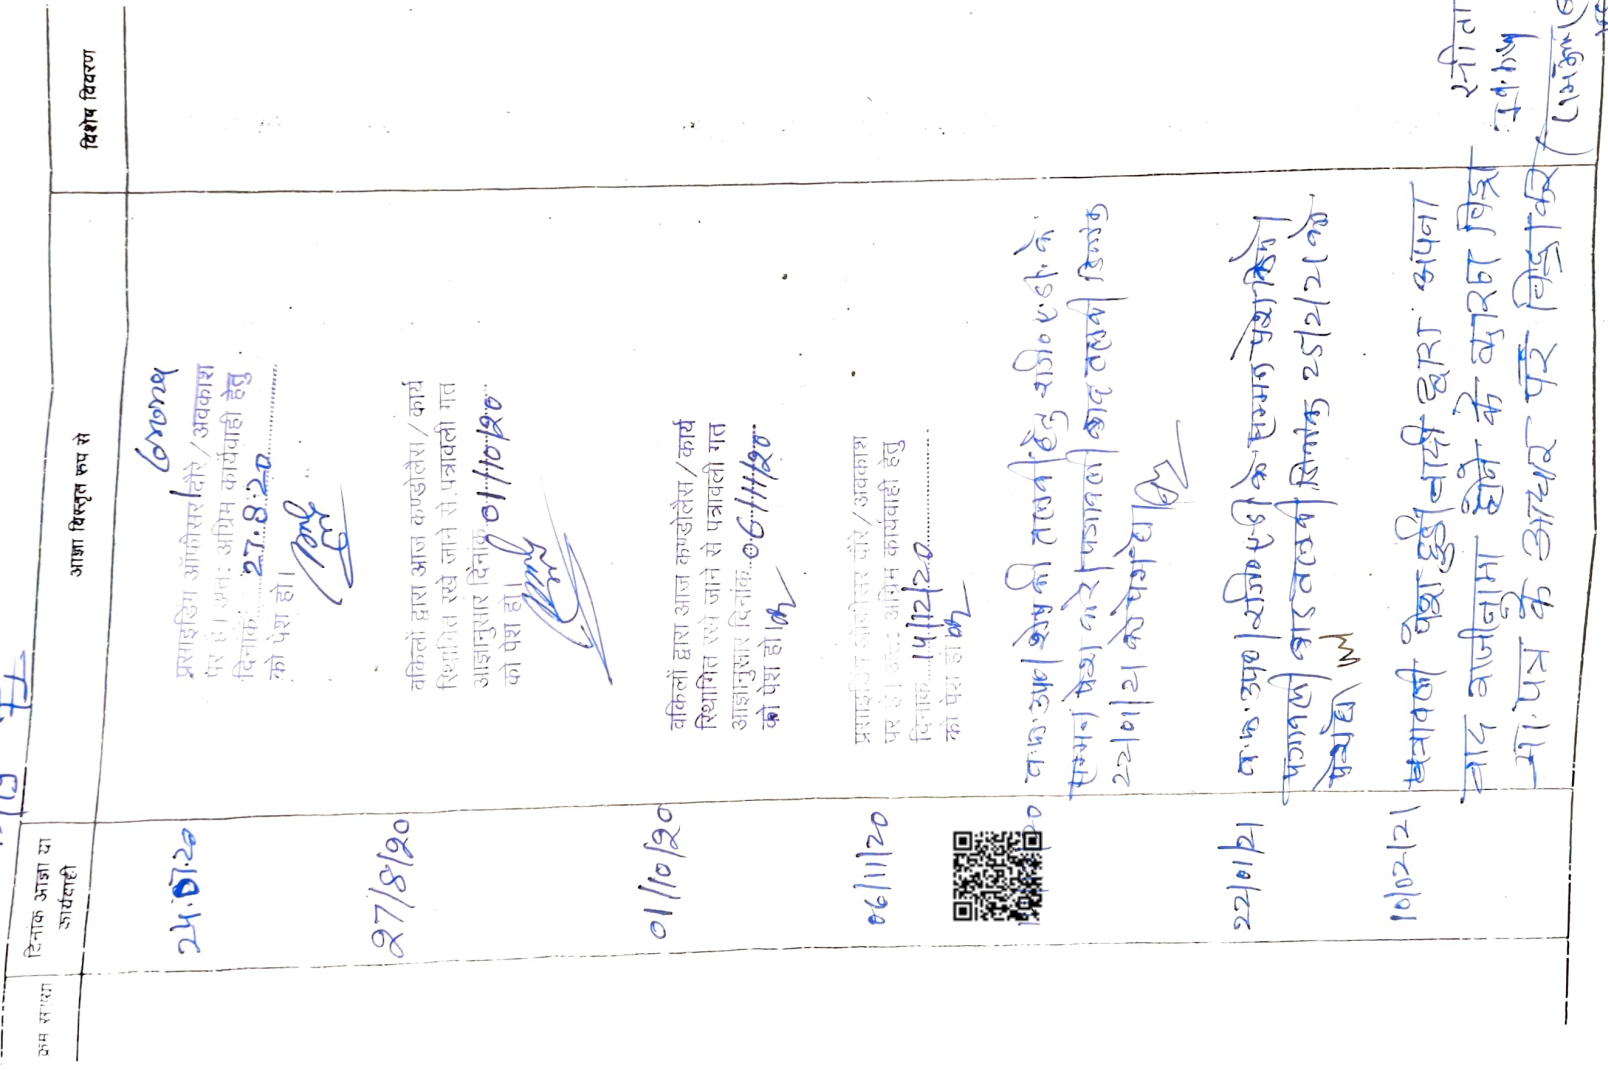 क्रम संख्या
दिनांक आज्ञा या
कार्यवाही
आज्ञा विस्तृत रूप से
विशेष विवरण
प्रसाइडिंग ऑफीसर दौरे / अवकाश
पर है। अतः अग्रिम कार्यवाही हेतु
दिनांक 27.8.20
को पेश हो।
27/8/20
वकिलों द्वारा आज कण्डोलेंस / कार्य
स्थगित रखे जाने से पत्रावली गत
आज्ञानुसार दिनांक 01/10/20
को पेश हो।
01/10/20
वकिलों द्वारा आज कण्डोलेंस / कार्य
स्थगित रखे जाने से पत्रावली गत
आज्ञानुसार दिनांक 06/11/20
को पेश हो।
06/11/20
प्रसाइडिंग ऑफीसर दौरे / अवकाश
पर है। अतः अग्रिम कार्यवाही हेतु
दिनांक 14/12/20
को पेश हो।
20 व.फ.उप. शेष की तलबी हेतु रजि० ए.डी. के
सम्मन पेश करे। पत्रावली बाद तलबी दिनांक
22/01/21 को पेश हो।
22/01/21 व.फ.उप. रजि० ए.डी. के सम्मन पेश किये।
पत्रावली बाद तलबी दिनांक 25/2/21 को
पेश हो।
10/02/21 पत्रावली पेश हुई वादी द्वारा अपना
वाद राजीनामा होने के कारण विड्रा
प्रा. पत्र के आधार पर विड्रा कर